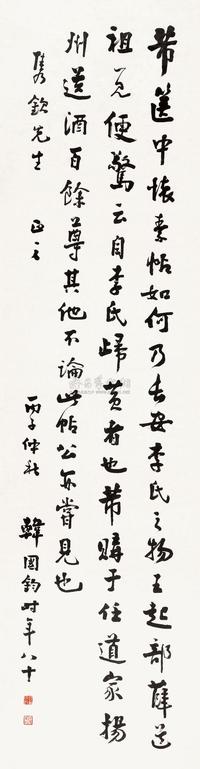 芾篋中懷素帖如何乃長安李氏之物王起部薛道
祖見便驚云自李氏歸黃者也芾購于任道家揚
州送酒百餘尊其他不論此帖公亦嘗見也
欽先生 正之
丙子仲秋 韓國鈞時年八十